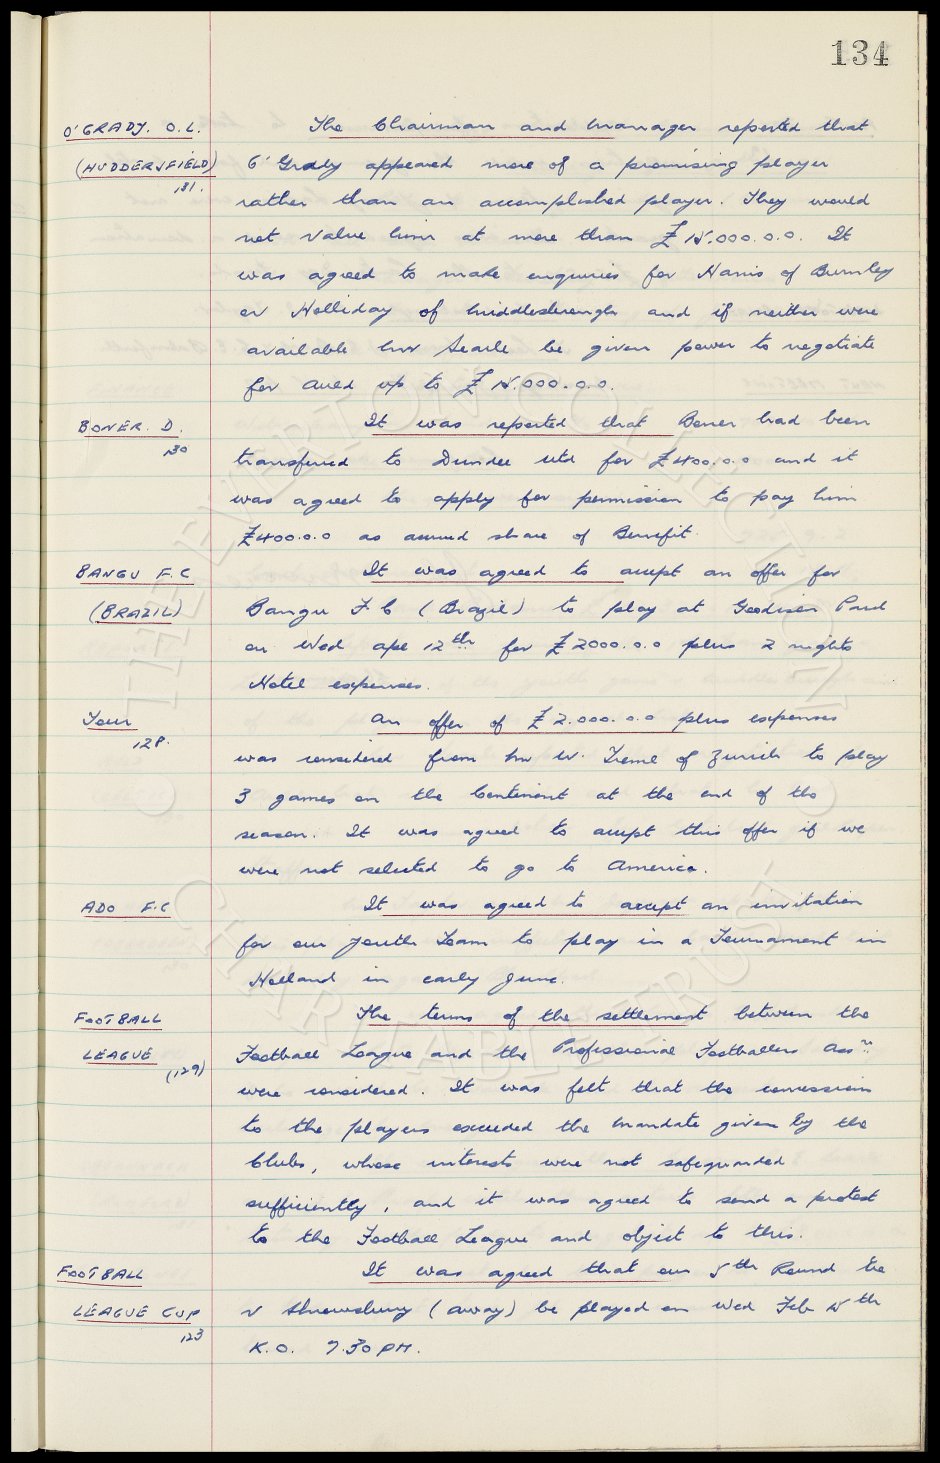 134
O'GRADY. O.L.
(HUDDERSFIELD)
131.
The Chairman and Manager reported that
O'Grady appeared more of a promising player
rather than an accomplished player. They would
not value him at more than £15.000.0.0. It
was agreed to make enquiries for Harris of Burnley
or Holliday of Middlesbrough and if neither were
available Mr Searle be given power to negotiate
for Auld up to £15.000.0.0.
BONER. D.
130
It was reported that Boner had been
transferred to Dundee Utd for £400.0.0 and it
was agreed to apply for permission to pay him
£400.0.0 as accrued share of Benefit.
BANGU F.C
(BRAZIL)
It was agreed to accept an offer for
Bangu F.C (Brazil) to play at Goodison Park
on Wed Apl 12th for £2000.0.0 plus 2 nights
Hotel expenses.
Tour
128.
An offer of £2.000.0.0 plus expenses
was considered from Mr W. Treml of Zurich to play
3 games on the Continent at the end of the
season. It was agreed to accept this offer if we
were not selected to go to America.
ADO F.C
It was agreed to accept an invitation
for our Youth Team to play in a Tournament in
Holland in early June.
FOOTBALL
LEAGUE
(129)
The terms of the settlement between the
Football League and the Professional Footballers Assn.
were considered. It was felt that the concession
to the players exceeded the mandate given by the
Clubs, whose interests were not safeguarded
sufficiently, and it was agreed to send a protest
to the Football League and object to this.
FOOTBALL
LEAGUE CUP
123
It was agreed that our 5th Round tie
v Shrewsbury (away) be played on Wed Feb 15th
K.O. 7.30 PM.
THE EVERTON COLLECTION
CHARITABLE TRUST